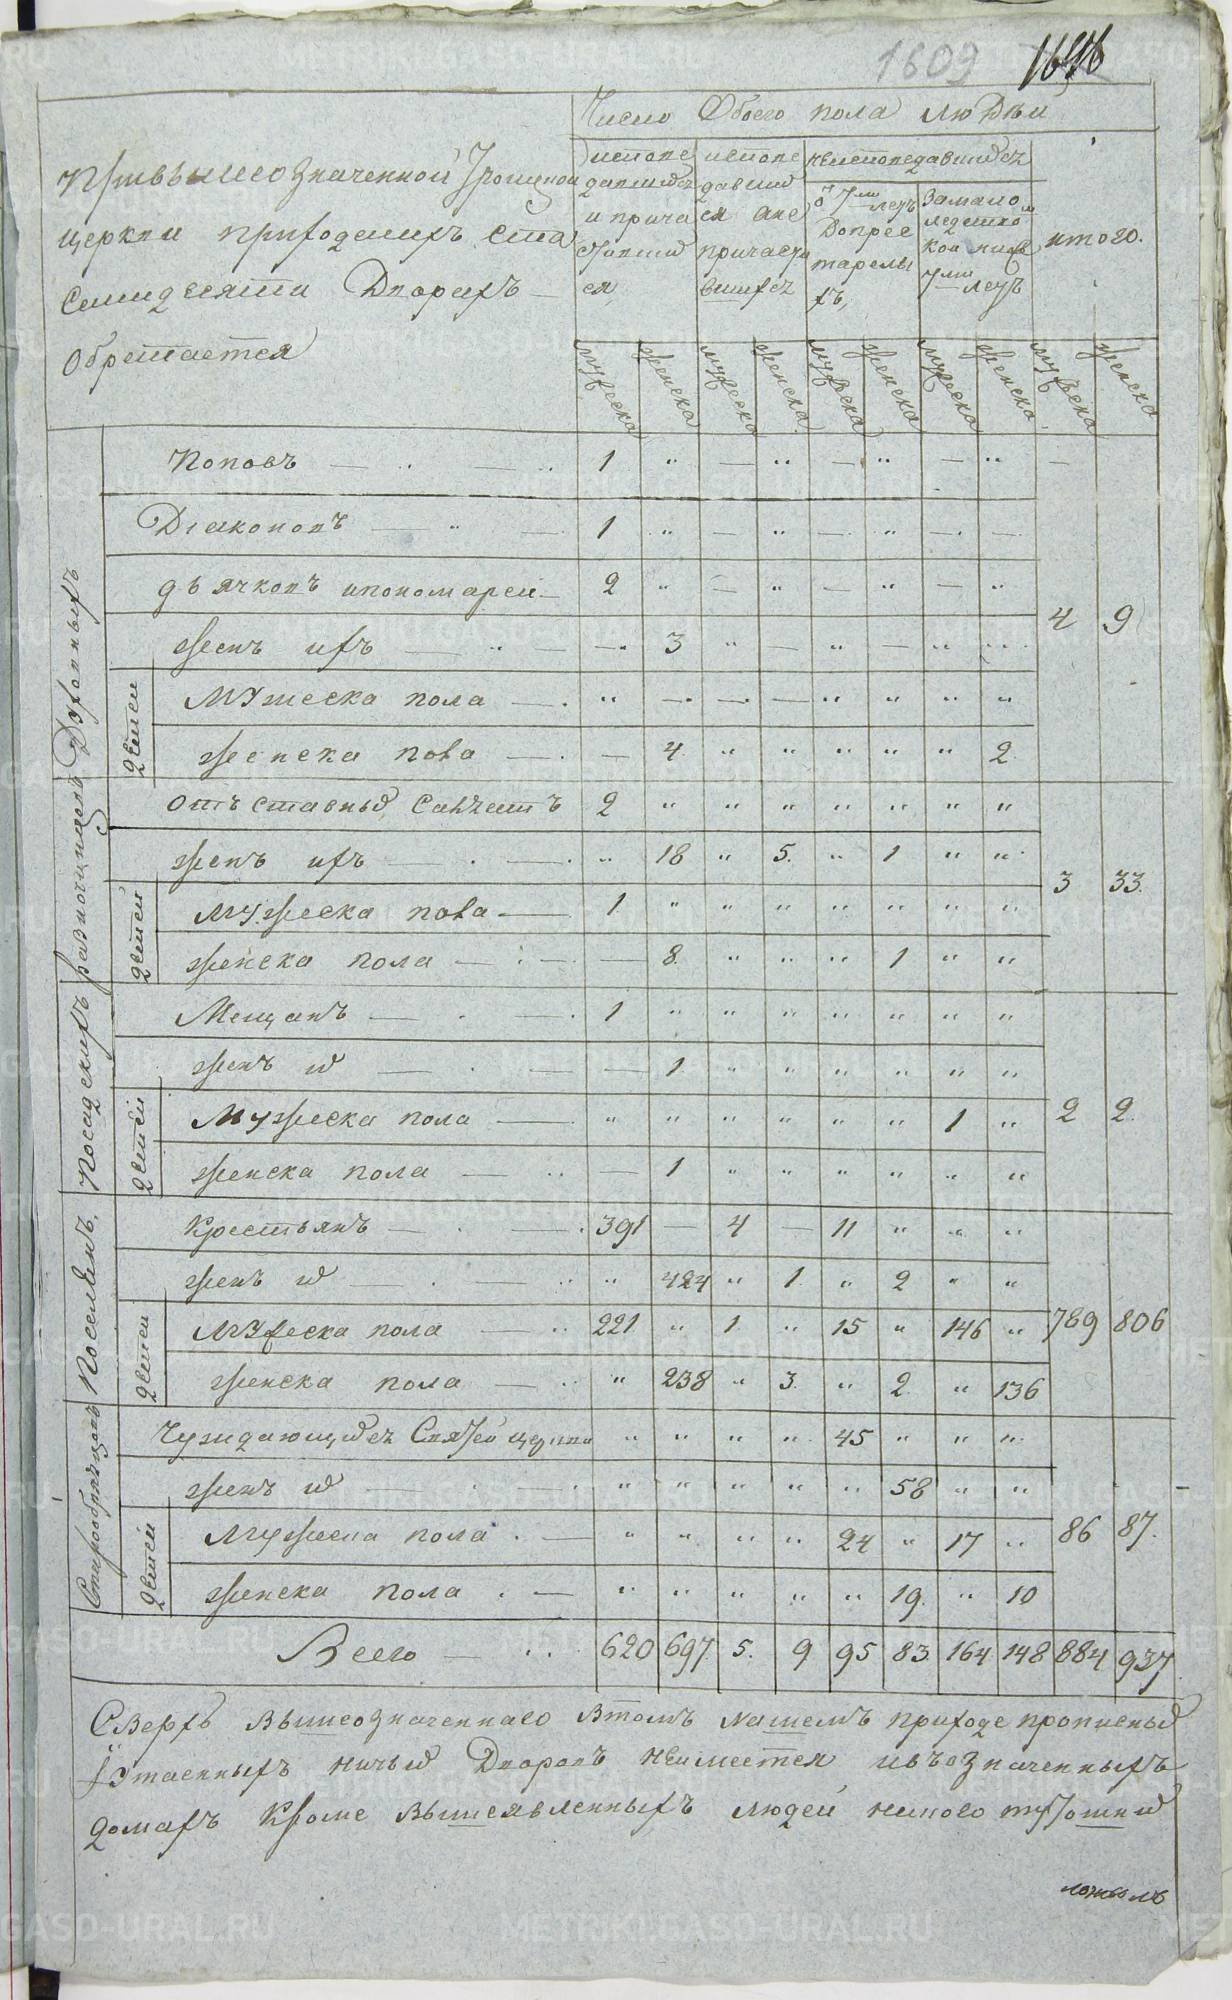 1609 1646
Число Обоего пола людей
Привышеозначенной Троицкой
церкви приходскихъ ста
семидесяти дворахъ
обретается
исповедавшихся и причастившихся
исповедавшихся а не причастившихся
неисповедавшихся
от 7ми летъ до престарелых
За малолетством кои ниже 7ми летъ
итого.
мужеска женска мужеска женска мужеска женска мужеска женска мужеска женска
Духовныхъ
Поповъ — 1 " — " — " — " —
Диаконовъ — 1 " — " — " — —
дьячковъ и пономарей — 2 " — " — " — " 4 9
женъ ихъ — — 3 " — " — " "
детей
Мужеска пола — " — — — " " " "
женска пола — — 4. " " " " " 2
разночинцовъ
отъ ставных Салдатъ 2 " " " " " " "
женъ ихъ — " 18 " 5. " 1 " "
3 33.
детей
мужеска пола — 1. " " " " " " "
женска пола — — 8. " " " 1 " "
Посадскихъ
Мещанъ — 1 " " " " " " "
женъ их — — 1 " " " " " "
детей
Мужеска пола — " " " " " " 1 " 2 2.
женска пола — — 1 " " " " " "
Поселянъ
Крестьянъ — 391 — 4 — 11 " " "
женъ их — " 424 " 1. " 2 " "
детей
мужеска пола — 221 " 1. " 15 " 146 " 789 806
женска пола — " 238 " 3. " 2 " 136
Старообрядцовъ
Чуждающихся Святей церкви " " " " 45 " " "
женъ их — " " " " " 58 " "
детей
Мужеска пола — " " " " 24 " 17 " 86 87.
женска пола — " " " " " 19. " 10
Всего — 620 697 5. 9 95 83. 164 148 884 937
Сверхъ вышеозначеннаго втомъ нашемъ приходе прописных
утаенныхъ ничьих дворовъ неимеется ивъозначенныхъ
домахъ кроме вышеявленныхъ людей никого
METRIKI.GASO-URAL.RU